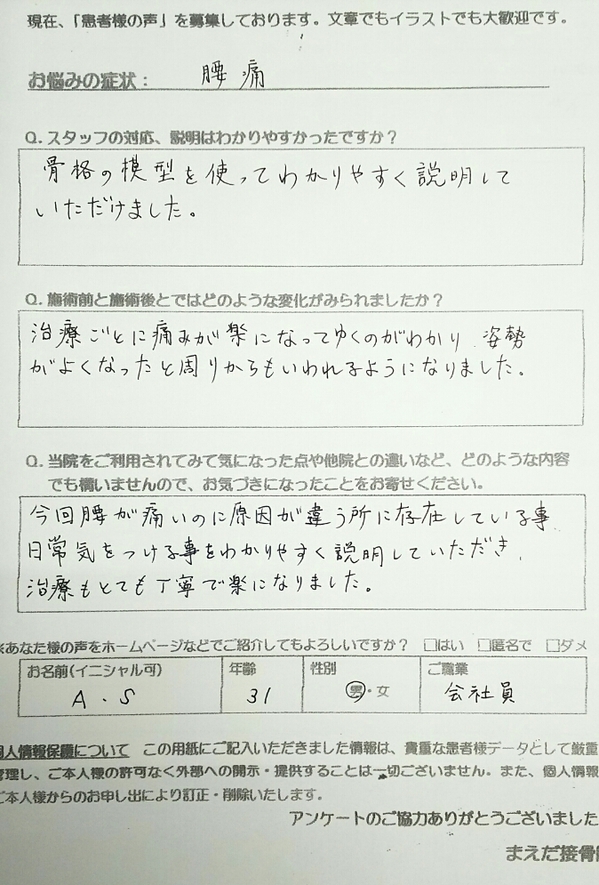 現在、「患者様の声」を募集しております。文章でもイラストでも大歓迎です。
お悩みの症状： 腰痛
Q. スタッフの対応、説明はわかりやすかったですか？
骨格の模型を使ってわかりやすく説明して
いただけました。
Q. 施術前と施術後とではどのような変化がみられましたか？
治療ごとに痛みが楽になってゆくのがわかり、姿勢
がよくなったと周りからもいわれるようになりました。
Q. 当院をご利用されてみて気になった点や他院との違いなど、どのような内容
でも構いませんので、お気づきになったことをお寄せください。
今回腰が痛いのに原因が違う所に存在している事、
日常気をつける事をわかりやすく説明していただき、
治療もとても丁寧で楽になりました。
※あなた様の声をホームページなどでご紹介してもよろしいですか？ □はい □匿名で □ダメ
お名前(イニシャル可) 年齢 性別 ご職業
A.S 31 男・女 会社員
個人情報保護について この用紙にご記入いただきました情報は、貴重な患者様データとして厳重
管理し、ご本人様の許可なく外部への開示・提供することは一切ございません。また、個人情報
ご本人様からのお申し出により訂正・削除いたします。
アンケートのご協力ありがとうございました
まえだ接骨